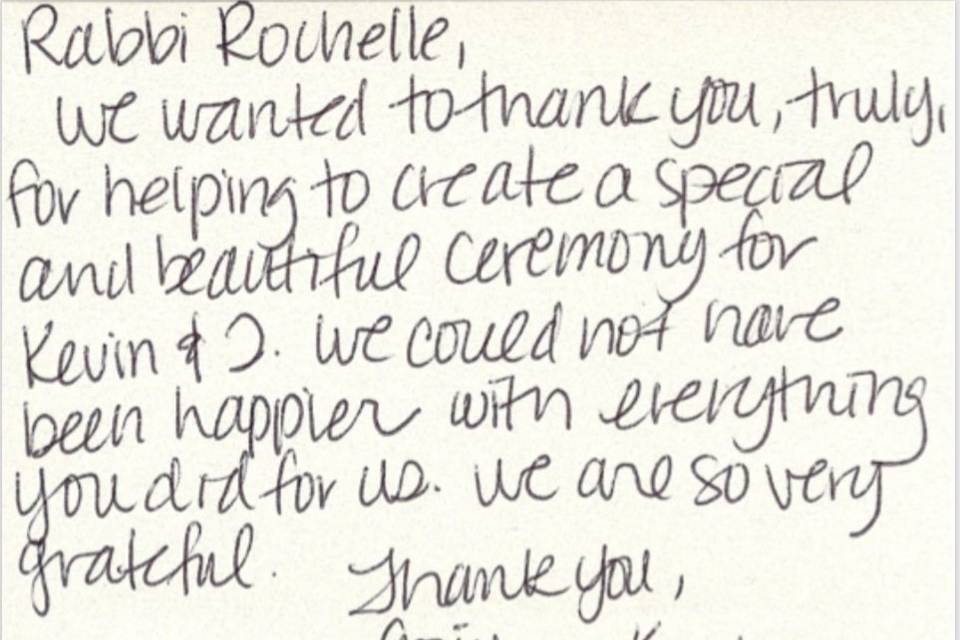 Rabbi Rochelle,
we wanted to thank you, truly,
for helping to create a special
and beautiful ceremony for
Kevin & I. We could not have
been happier with everything
you did for us. We are so very
grateful.
Thank you,